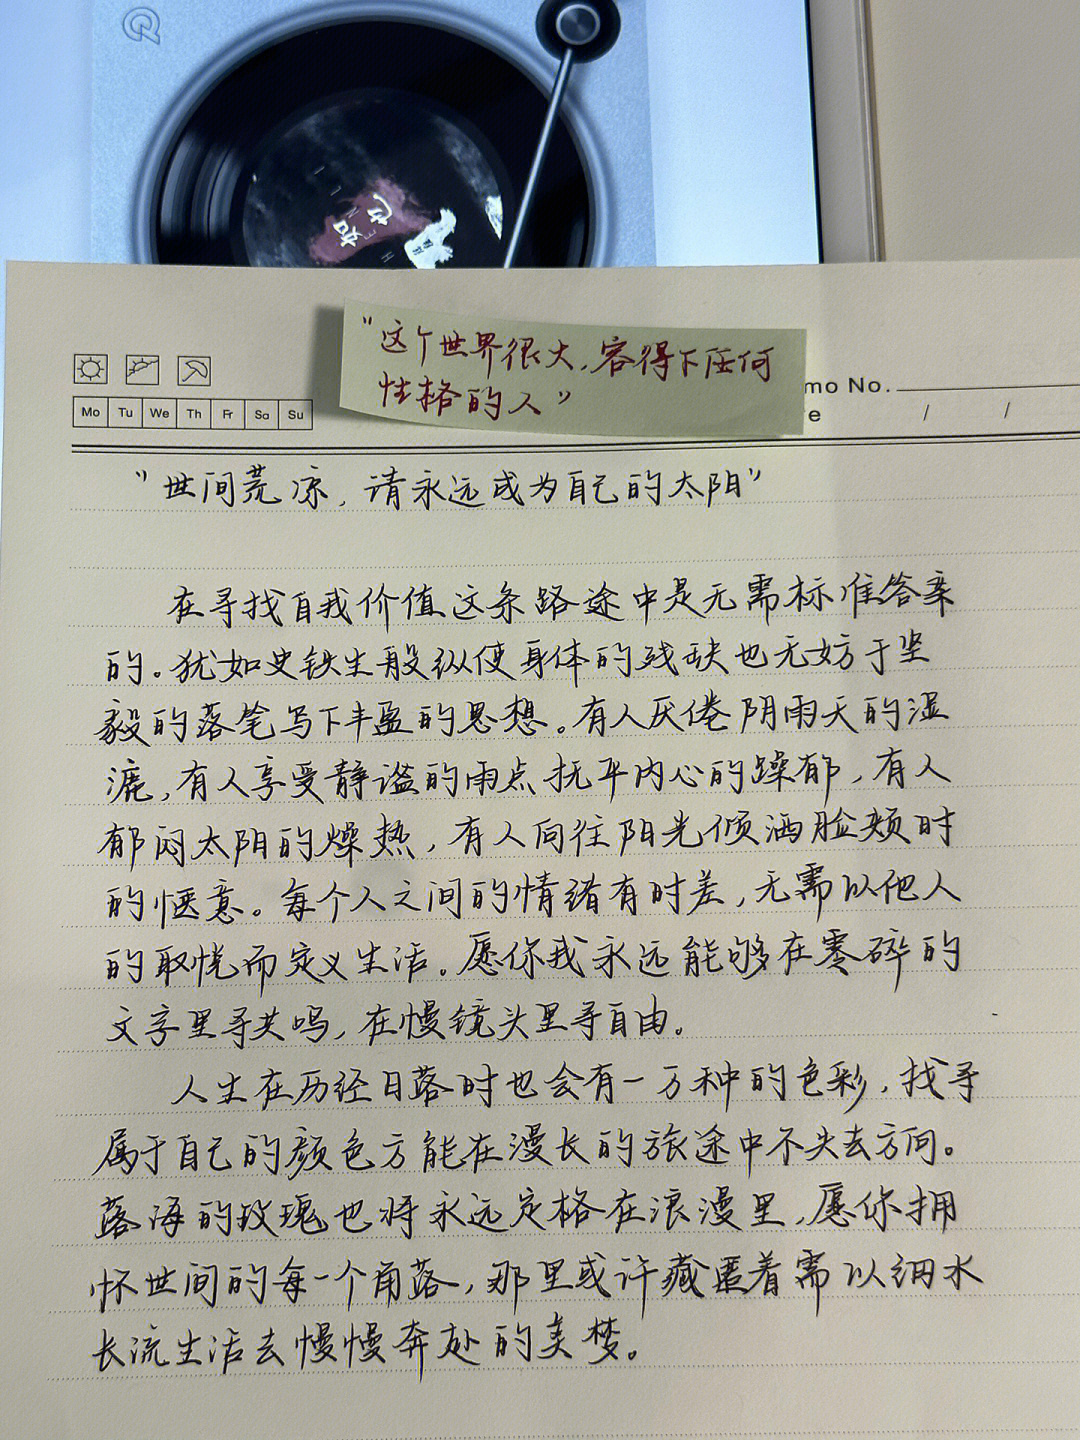 如也
"这个世界很大,容得下任何
性格的人"
mo No.
e / /
Mo Tu We Th Fr Sa Su
"世间荒凉,请永远成为自己的太阳"
在寻找自我价值这条路途中是无需标准答案
的。犹如史铁生般纵使身体的残缺也无妨于坚
毅的落笔写下丰盈的思想。有人厌倦阴雨天的湿
漉,有人享受静谧的雨点抚平内心的躁郁,有人
郁闷太阳的燥热,有人向往阳光倾洒脸颊时
的惬意。每个人之间的情绪有时差,无需以他人
的取悦而定义生活。愿你我永远能够在零碎的
文字里寻共鸣,在慢镜头里寻自由。
人生在历经日落时也会有一万种的色彩,找寻
属于自己的颜色方能在漫长的旅途中不失去方向。
落海的玫瑰也将永远定格在浪漫里,愿你拥
怀世间的每一个角落,那里或许藏匿着需以细水
长流生活去慢慢奔赴的美梦。